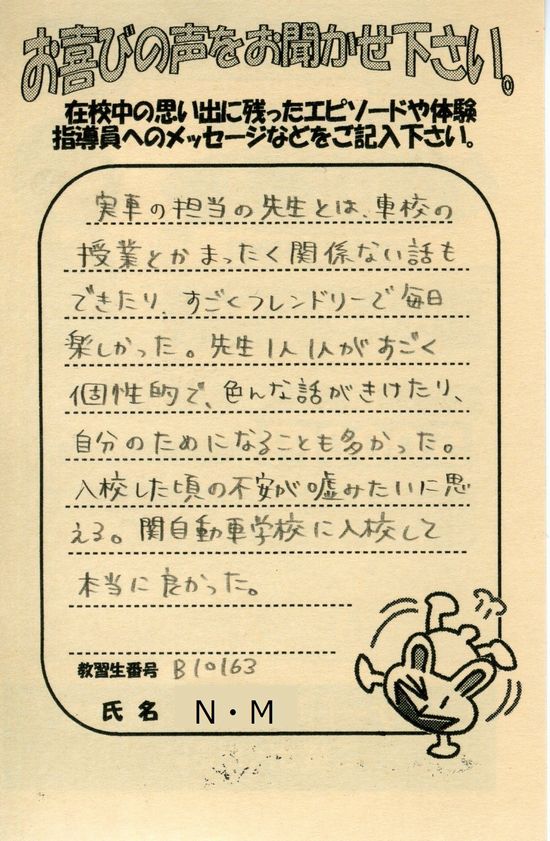 お喜びの声をお聞かせ下さい。
在校中の思い出に残ったエピソードや体験
指導員へのメッセージなどをご記入下さい。
実車の担当の先生とは、車校の
授業とかまったく関係ない話も
できたり、すごくフレンドリーで毎日
楽しかった。先生1人1人がすごく
個性的で、色んな話がきけたり、
自分のためになることも多かった。
入校した頃の不安が嘘みたいに思
える。関自動車学校に入校して
本当に良かった。
教習生番号 B10163
氏名 N・M